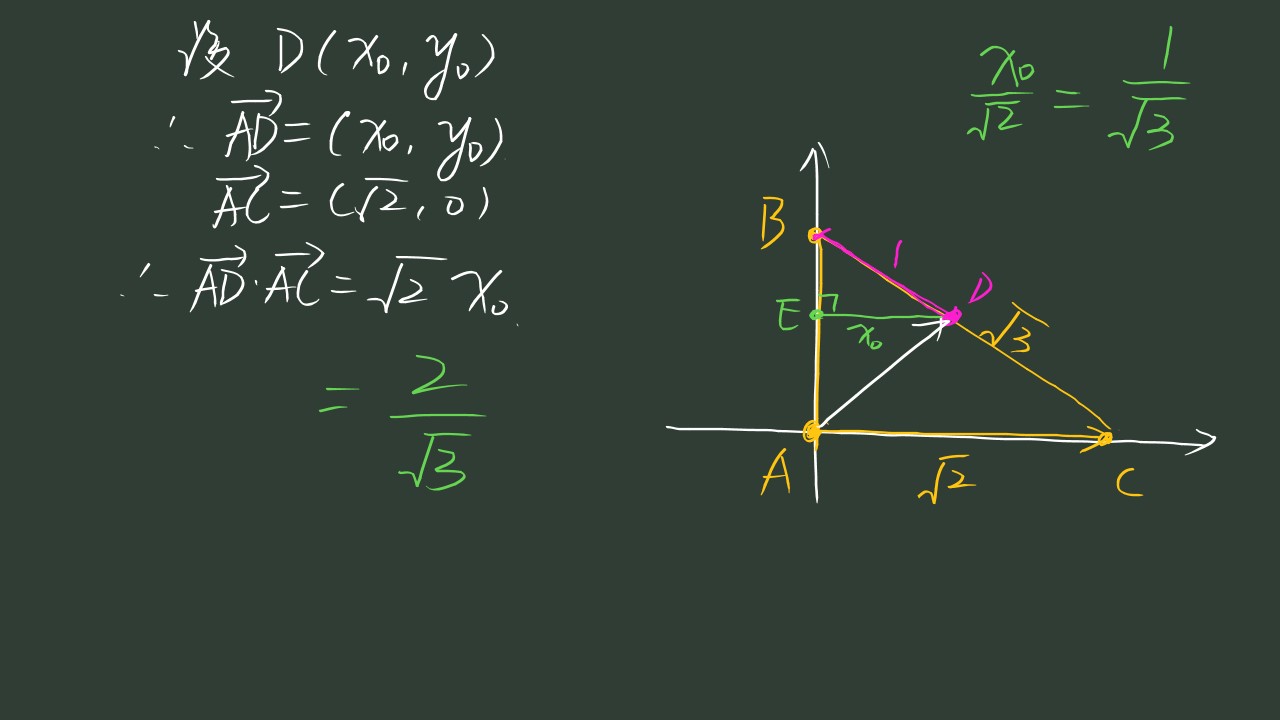 设 D(x₀, y₀)
∴ \overrightarrow{AD} = (x₀, y₀)
\overrightarrow{AC} = (√2, 0)
∴ \overrightarrow{AD}·\overrightarrow{AC} = √2 x₀
= \frac{2}{√3}
\frac{x₀}{√2} = \frac{1}{√3}
B
1
D
E
x₀
√3
A
√2
C